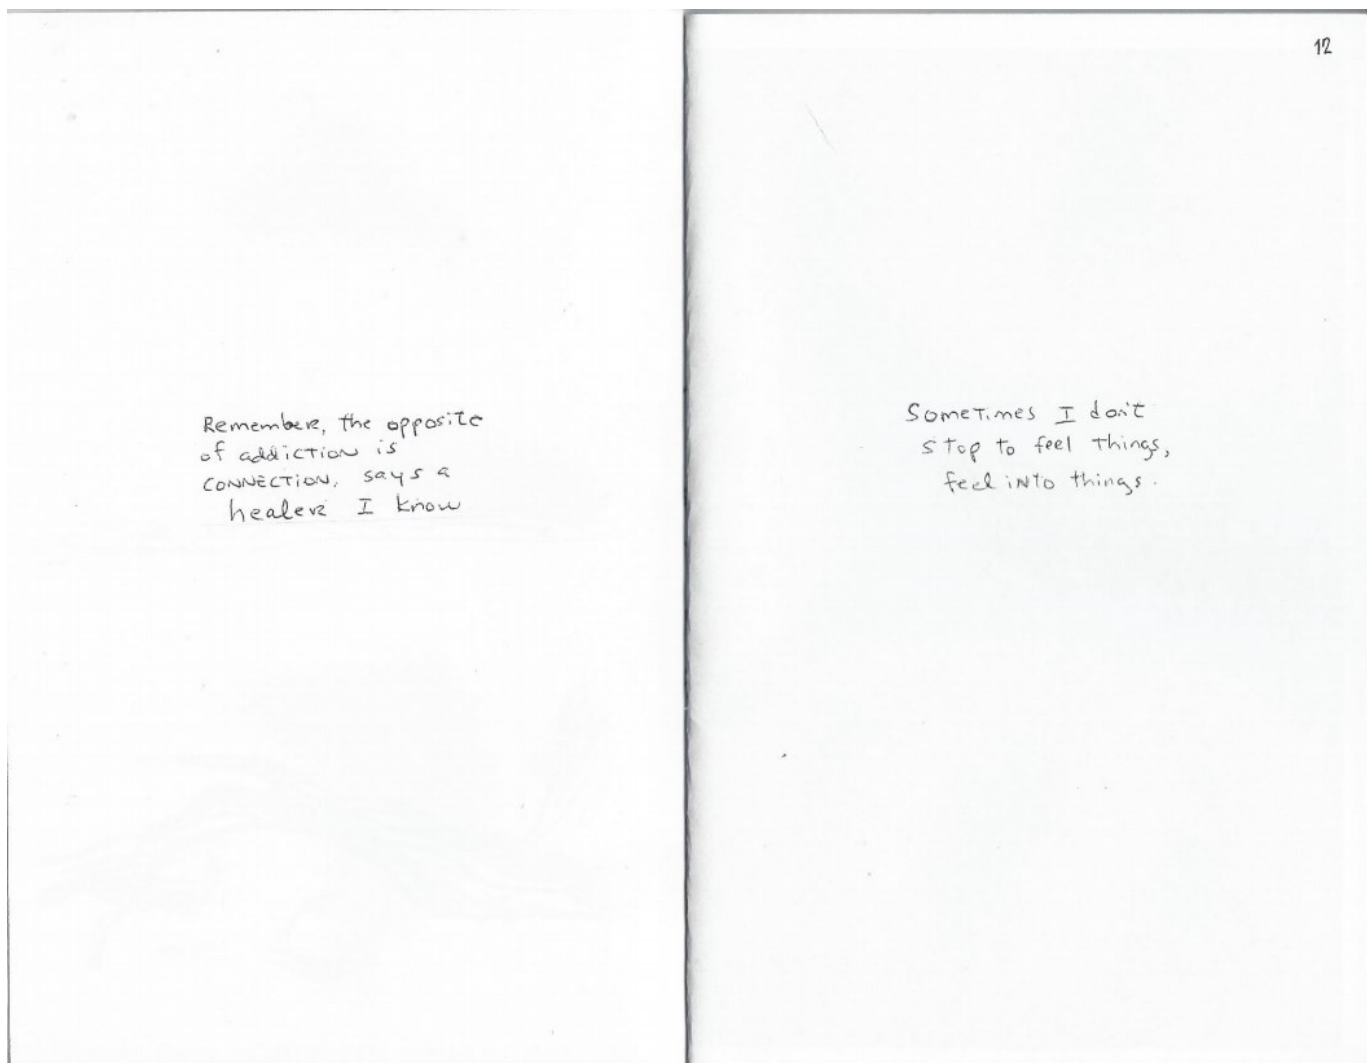 Remember, the opposite
of addiction is
CONNECTION, says a
healer I know
12
Sometimes I don't
stop to feel things,
feel iNTo things.